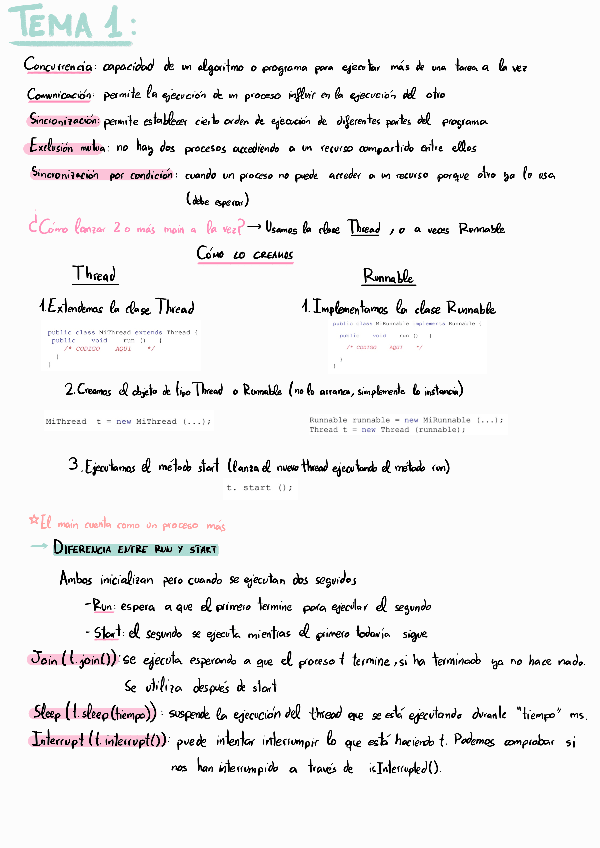 TEMA 1:
Concurrencia: capacidad de un algoritmo o programa para ejecutar más de una tarea a la vez
Comunicación: permite la ejecución de un proceso influir en la ejecución del otro
Sincronización: permite establecer cierto orden de ejecución de diferentes partes del programa
Exclusión mutua: no hay dos procesos accediendo a un recurso compartido entre ellos
Sincronización por condición: cuando un proceso no puede acceder a un recurso porque otro ya lo usa
(debe esperar)
¿Cómo lanzar 2 o más main a la vez? → Usamos la clase Thread, o a veces Runnable
CÓMO LO CREAMOS
Thread Runnable
1. Extendemos la clase Thread 1. Implementamos la clase Runnable
public class MiThread extends Thread { public class MiRunnable implements Runnable {
public void run () { public void run () {
/* CODIGO AQUI */ /* CODIGO AQUI */
} }
} }
2. Creamos el objeto de tipo Thread o Runnable (no lo arranca, simplemente lo instancia)
MiThread t = new MiThread (...); Runnable runnable = new MiRunnable (...);
Thread t = new Thread (runnable);
3. Ejecutamos el método start (lanza el nuevo thread ejecutando el método run)
t. start ();
☆El main cuenta como un proceso más
→ DIFERENCIA ENTRE RUN Y START
Ambos inicializan pero cuando se ejecutan dos seguidos
- Run: espera a que el primero termine para ejecutar el segundo
- Start: el segundo se ejecuta mientras el primero todavía sigue
Join (t.join()): se ejecuta esperando a que el proceso t termine, si ha terminado ya no hace nada.
Se utiliza después de start
Sleep (t.sleep(tiempo)): suspende la ejecución del thread que se está ejecutando durante "tiempo" ms.
Interrupt (t.interrupt()): puede intentar interrumpir lo que está haciendo t. Podemos comprobar si
nos han interrumpido a través de isInterrupted().